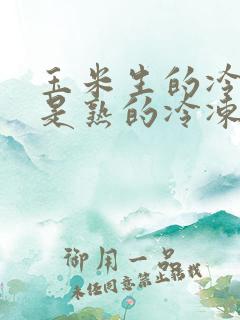 玉米生的冷
是熟的冷凍
御用一品
未经同意禁止转载